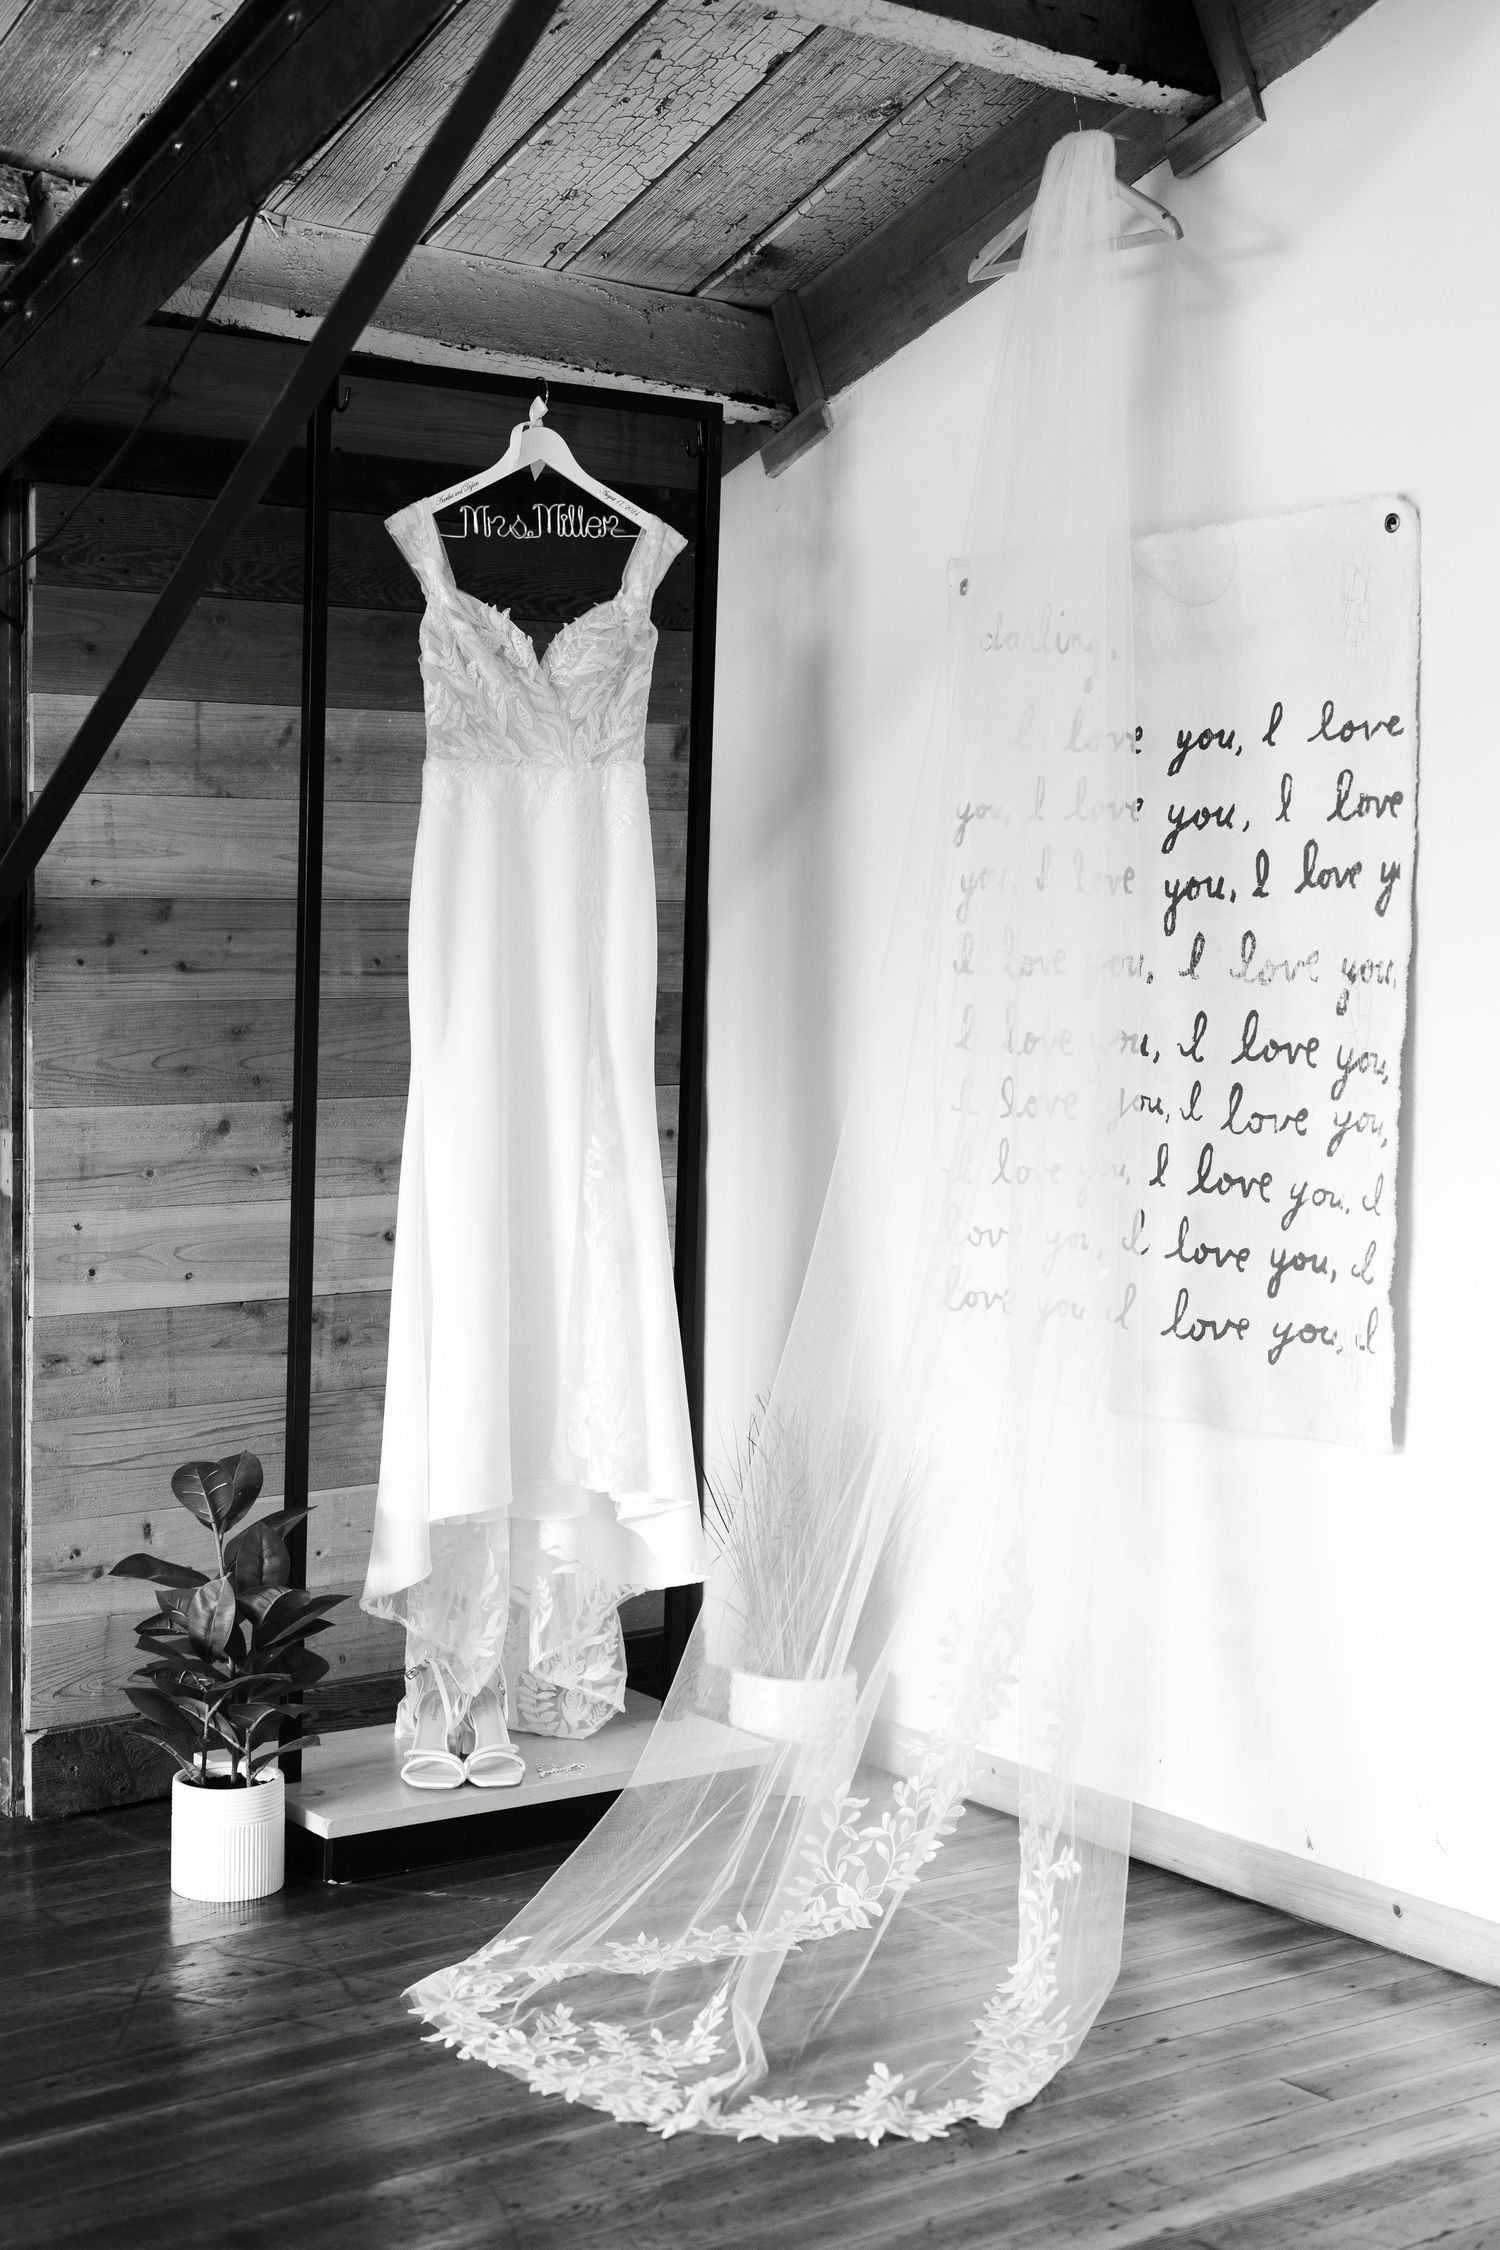 and Dylan
August 17, 2024
Mrs. Miller
darling,
I love you, I love
you, I love you, I love
you, I love you, I love y
I love you, I love you,
I love you, I love you,
I love you, I love you,
I love you, I love you, I
love you, I love you, I
love you I love you, I